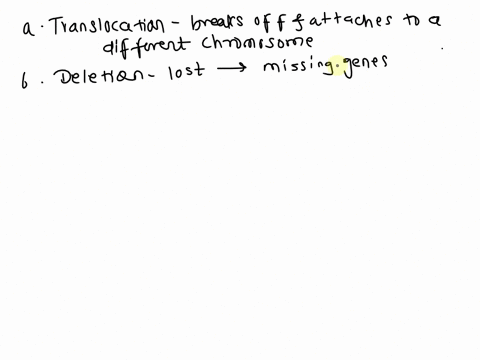 a. Translocation - breaks off & attaches to a
different chromosome
b. Deletion - lost → missing genes